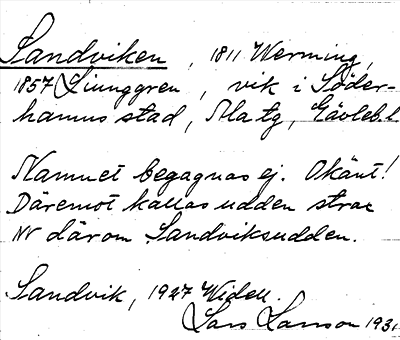 Sandviken, 1811 Werming,
1857 Ljunggren, vik i Söder-
hamns stad, Matg, Gävleb. l
Namnet begagnas ej. Okänt!
Däremot kallas udden strax
NV därom Sandviksudden.
Sandvik, 1927 Widell.
Lars Larsson 193